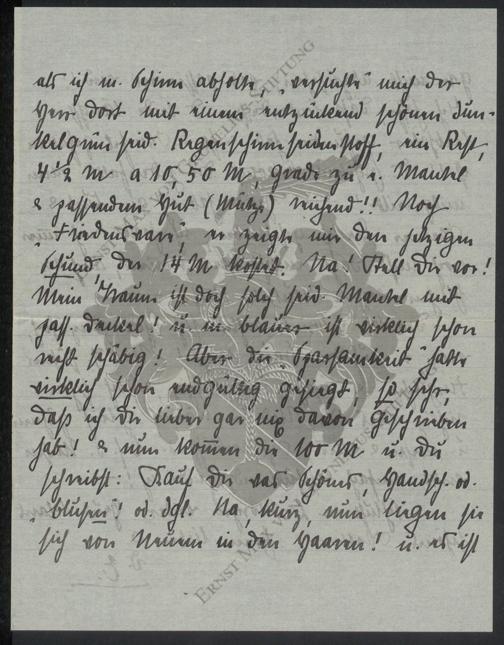 als ich m. Schirm abholte, „versuchte" mich der
Herr dort mit einem entzückend schönen dun-
kelgrün seid. Regenschirmseidenstoff, ein Rest,
4 1/2 m a 10,50 M, grade zu e. Mantel
& passendem Hut (Mütze) reichend!! Noch
„Friedensware", er zeigte mir den jetzigen
„Schund", der 14 M kostet. Na! Stell Dir vor!
Mein Traum ist doch solch seid. Mantel mit
pass. Deckerl! u. m. blauer ist wirklich schon
recht schäbig! Aber die „Sparsamkeit" hatte
wirklich schon endgültig gesiegt, so sehr,
daß ich Dir lieber gar nix davon geschrieben
hab! & nun kommen die 100 M u. Du
schreibst: Kauf Dir was Schönes, Handsch. od.
„blusen"! od. dgl. Na, kurz, nun liegen sie
sich von Neuem in den Haaren! u. es ist
ERNST MAX
STIFTUNG